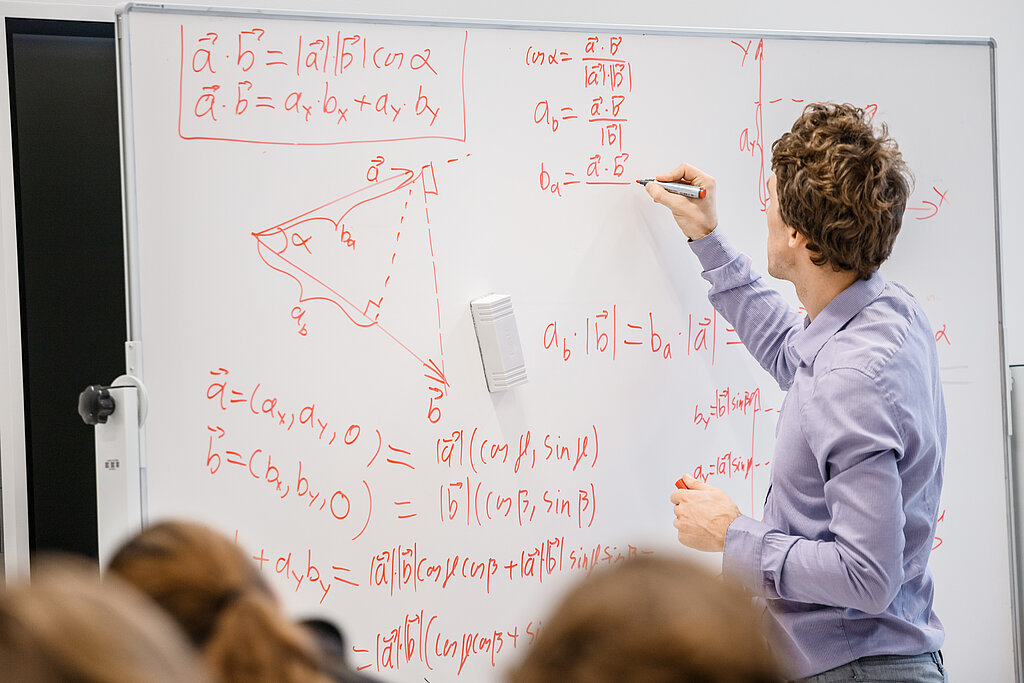 a⃗ · b⃗ = |a⃗|·|b⃗| cos α
a⃗ · b⃗ = aₓ·bₓ + a_y·b_y
cos α = a⃗·b⃗ / |a⃗|·|b⃗|
a_b = a⃗·b⃗ / |b⃗|
b_a = a⃗·b⃗
a⃗
α
b_a
a_b
b⃗
y
a_y
x
a_b · |b⃗| = b_a · |a⃗| =
α
a⃗ = (aₓ, a_y, 0) = |a⃗|(cos μ, sin μ)
b⃗ = (bₓ, b_y, 0) = |b⃗|(cos β, sin β)
b_y = |b⃗| sin β
a_y = |a⃗| sin μ
+ a_y b_y = |a⃗|·|b⃗| cos μ cos β + |a⃗|·|b⃗| sin μ sin
= |a⃗|·|b⃗| (cos μ cos β + si